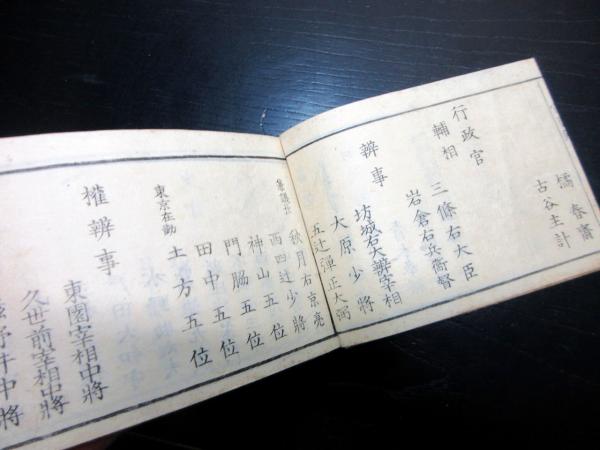 儒 春齋
古谷主計
行政官
輔相 三條右大臣
岩倉右兵衞督
辨事 坊城右大辨宰相
大原少將
五辻彈正大弼
秋月右京亮
西四辻少將
神山五位
門脇五位
田中五位
東京在勤 土方五位
權辨事 東園宰相中將
久世前宰相中將
野井中將